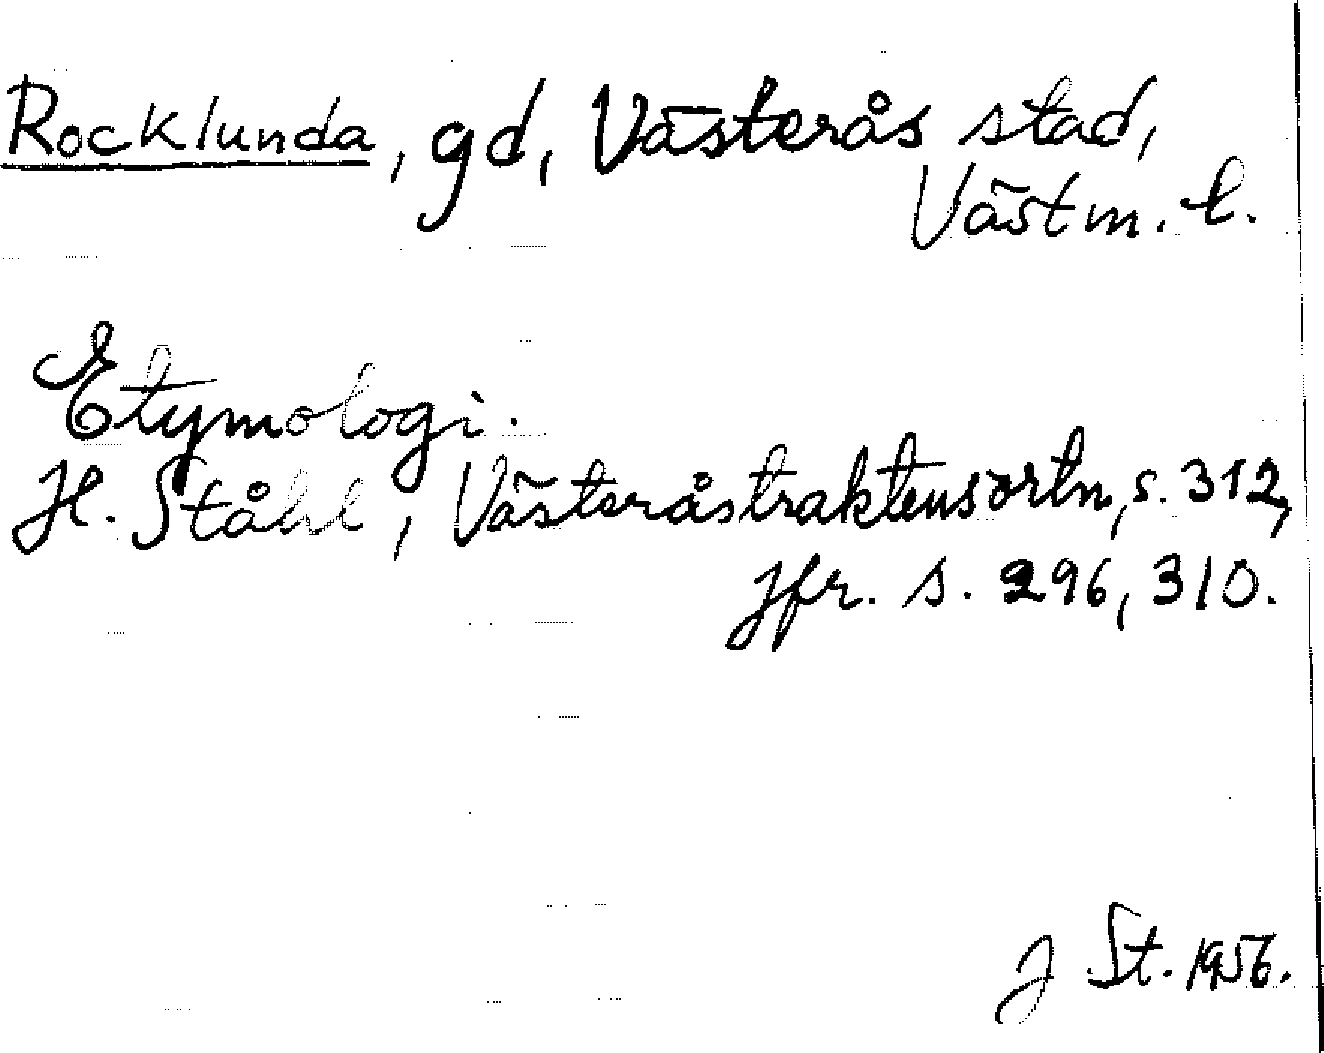 Rocklunda, gd, Västerås stad,
Västm. l.
Etymologi.
H. Ståhl, Västeråstraktens ortn, s. 312,
jfr. s. 296, 310.
J St. 1956.